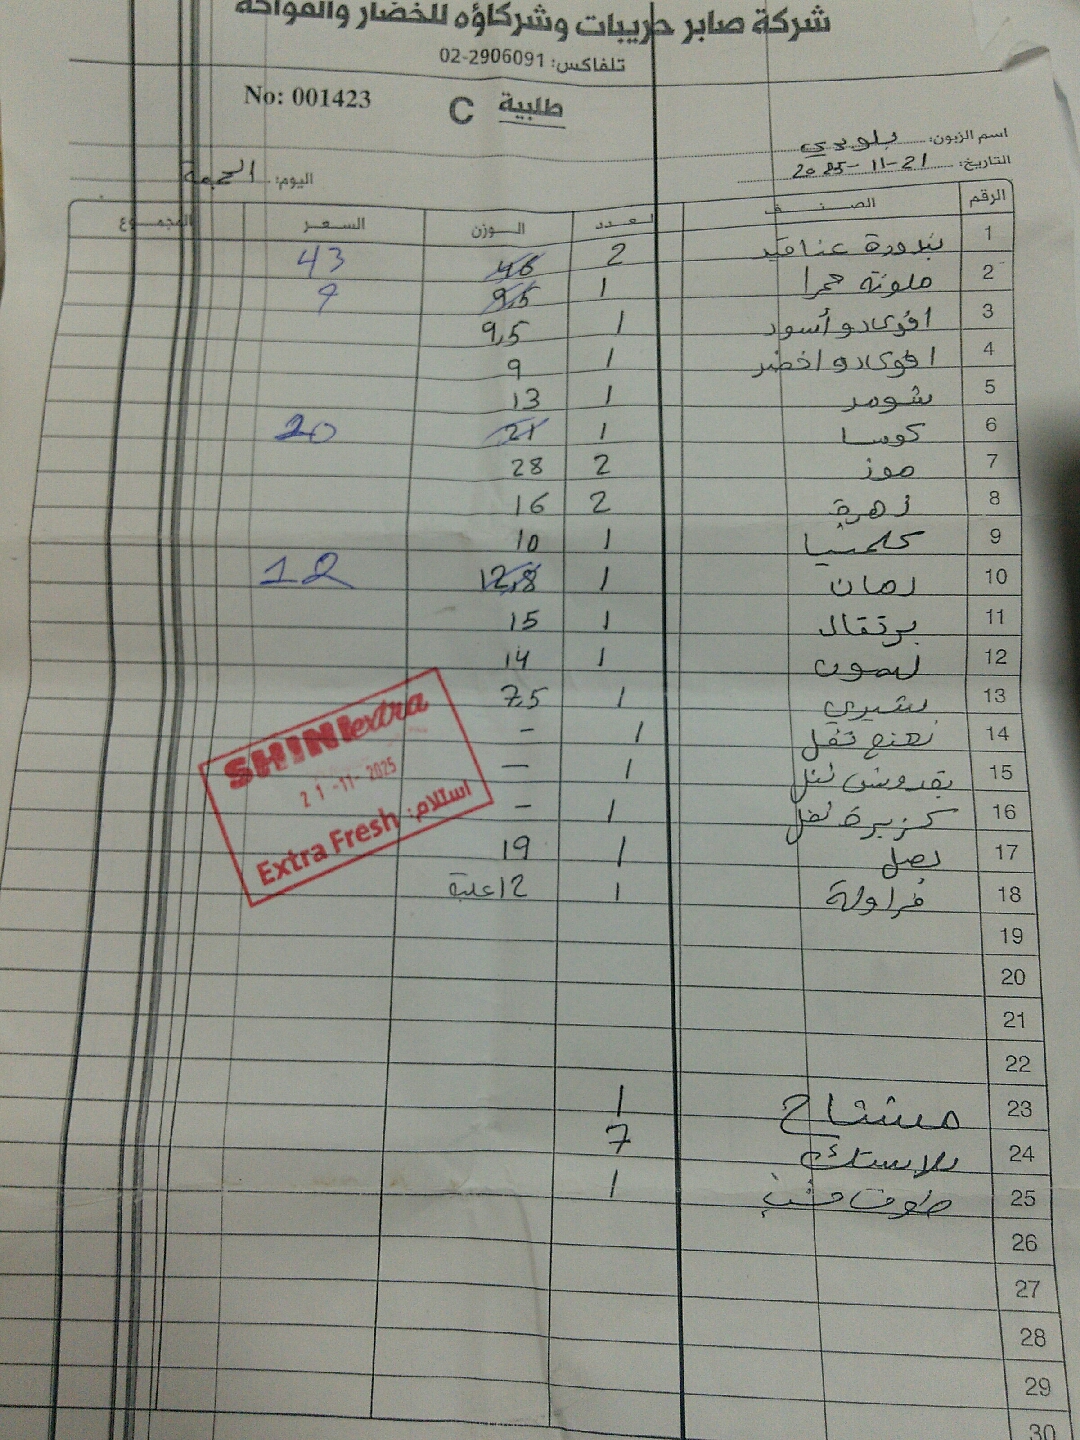 شركة صابر حريبات وشركاؤه للخضار والفواكه
تلفاكس: 02-2906091
No: 001423
طلبية C
اسم الزبون:
التاريخ: 21-11-2025
اليوم: الجمعة
الرقم الصنف العدد الوزن السعر المجموع
1 بندورة عناقيد 2 46 43
2 ملونة حمرا 1 9,5 9
3 افوكادو أسود 1 9,5
4 افوكادو اخضر 1 9
5 شومر 1 13
6 كوسا 1 21 20
7 موز 2 28
8 زهرة 2 16
9 كلمنتينا 1 10
10 رمان 1 12,8 12
11 برتقال 1 15
12 ليمون 1 14
13 1 7,5
14 نعنع تفل 1 -
15 بقدونس تفل 1 -
16 كزبرة تفل 1 -
17 بصل 1 19
18 فراولة 1 12 علبة
19
20
21
22
23 مشتاح 1
24 بلاستك 7
25 1
26
27
28
29
30
SHINI extra
21-11-2025
استلام: Extra Fresh